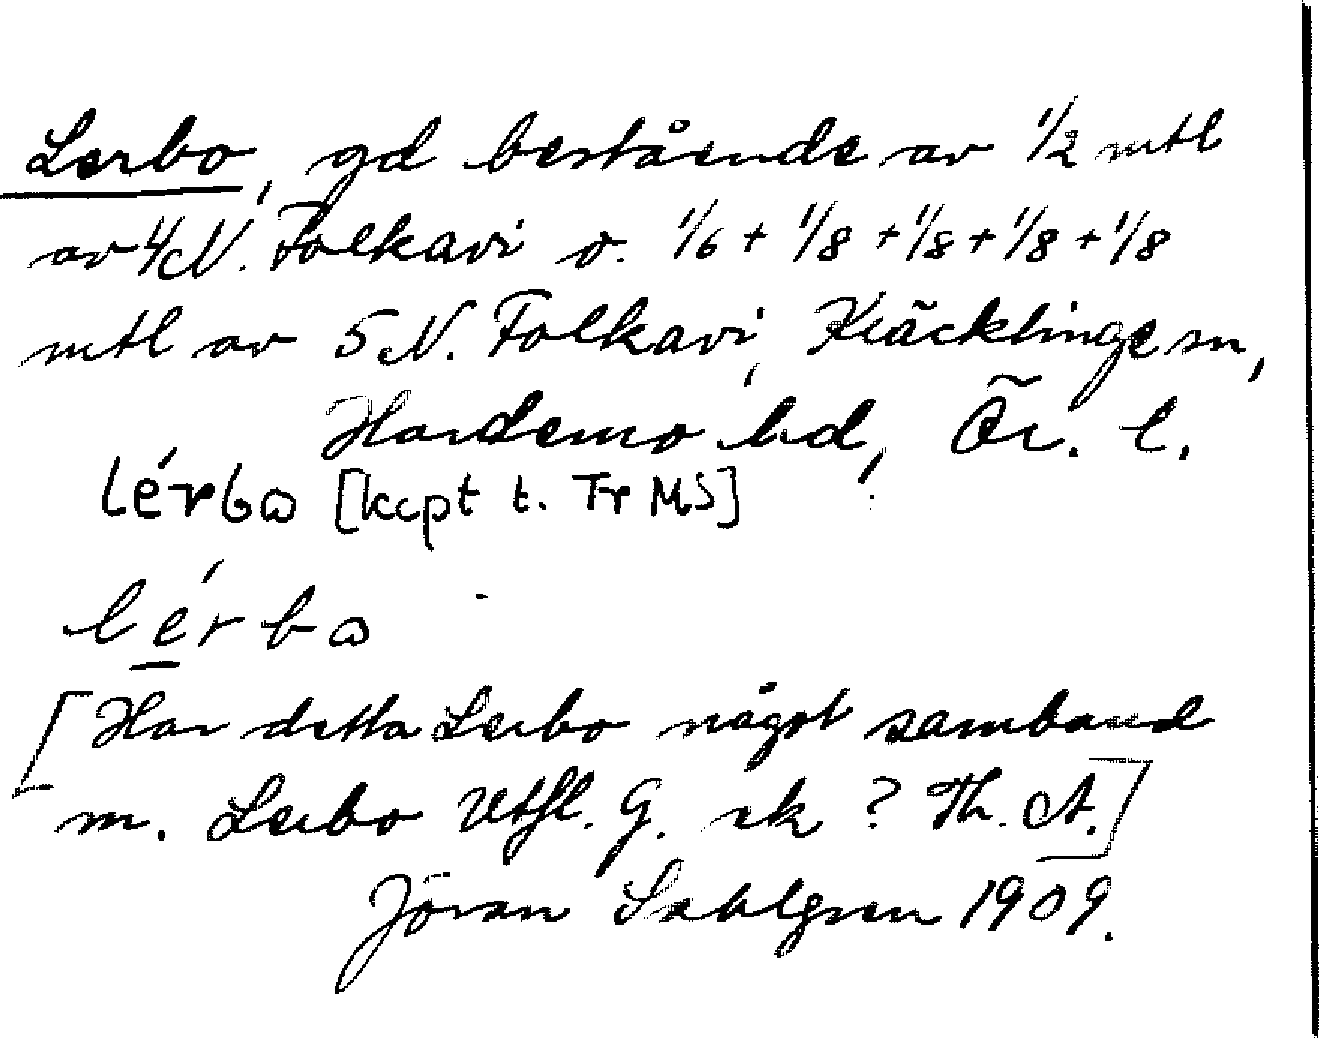 Lerbo, gd bestående av 1/2 mtl
av 4 N. Folkavi o. 1/6 + 1/8 + 1/8 + 1/8 + 1/8
mtl av 5 N. Folkavi, Kräcklinge sn,
Hardemo hd, Ör. l.
lérbɷ [kcpt t. Fr MS]
lérbɷ
[Har detta Lerbo något samband
m. Lerbo Utfl. G. sk ? Th. A.]
Jöran Sahlgren 1909.